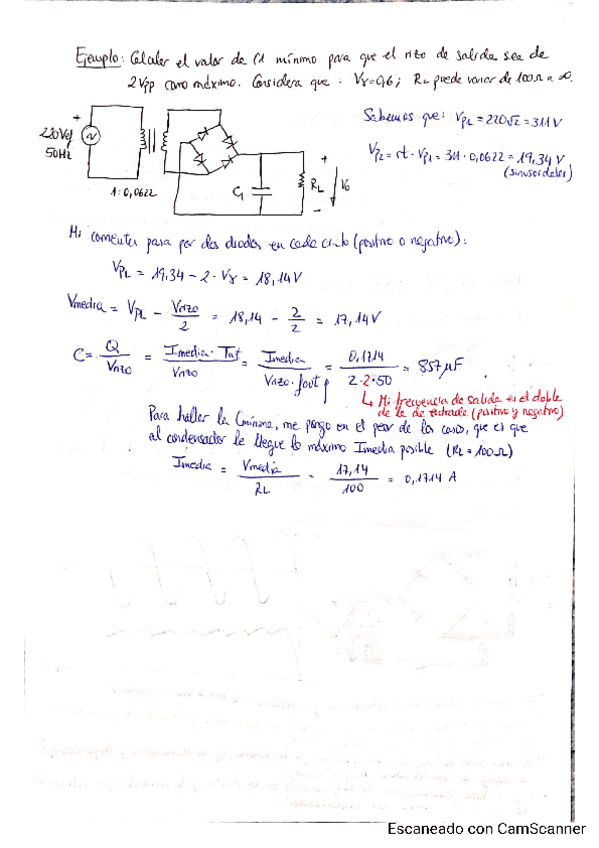 Ejemplo: Calcular el valor de C1 mínimo para que el rizo de salida sea de
2Vpp como máximo. Considera que: Vγ=0,6; RL puede variar de 100Ω a ∞.
Sabemos que: VP1 = 220√2 = 311V
220Vef
50Hz
+
1:0,0622
C1
RL
+
V0
-
VP2 = rt · VP1 = 311 · 0,0622 = 19,34 V
(sinusoidales)
Mi corriente pasa por dos diodos en cada ciclo (positivo o negativo):
VPL = 19,34 - 2 · Vγ = 18,14V
Vmedia = VPL - Vrizo/2 = 18,14 - 2/2 = 17,14V
C = Q/Vrizo = Imedia · Tout/Vrizo = Imedia/Vrizo · fout = 0,1714/2·2·50 = 857μF
↳ Mi frecuencia de salida es el doble
de la de entrada (positivo y negativo)
Para hallar la Cmínima, me pongo en el peor de los casos, que es que
al condensador le llegue la máxima Imedia posible (RL = 100Ω)
Imedia = Vmedia/RL = 17,14/100 = 0,1714 A
Escaneado con CamScanner